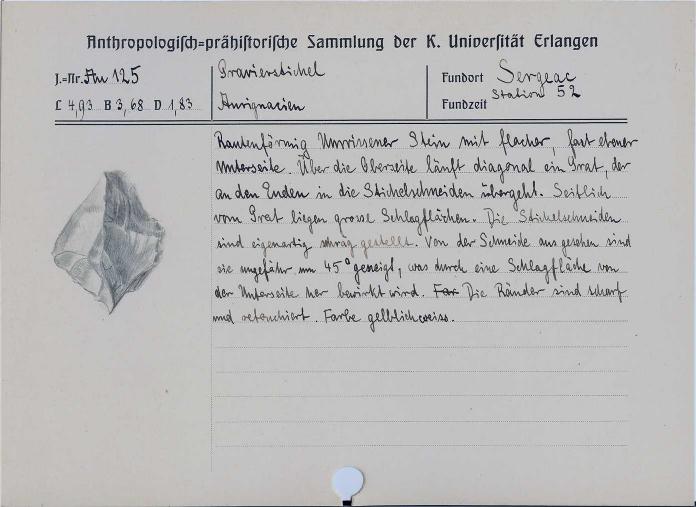 Anthropologisch=prähistorische Sammlung der K. Universität Erlangen
J.=Nr. Au 125
L 4,93 B 3,68 D 1,83
Gravierstichel
Aurignacien
Fundort Sergeac
Fundzeit Station 52
Rautenförmig Umrissener Stein mit flacher, fast ebener
Unterseite. Über die Oberseite läuft diagonal ein Grat, der
an den Enden in die Stichelschneiden übergeht. Seitlich
vom Grat liegen grosse Schlagflächen. Die Stichelschneiden
sind eigenartig schräg gestellt. Von der Schneide aus gesehen sind
sie ungefähr um 45° geneigt, was durch eine Schlagfläche von
der Unterseite her bewirkt wird. Far Die Ränder sind scharf
und retouchiert. Farbe gelblichweiss.